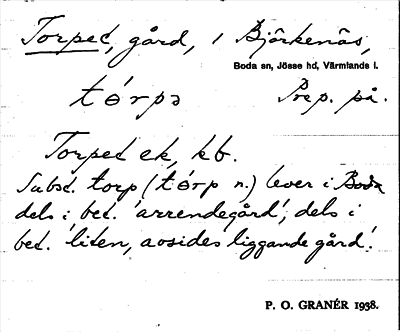 Torpet, gård, i Björkenäs,
Boda sn, Jösse hd, Värmlands l.
tórpə Prep. på.
Torpet ek, kb.
Subst. torp (tórp n.) lever i Boda
dels i bet. 'arrendegård', dels i
bet. 'liten, avsides liggande gård'.
P. O. GRANÉR 1938.